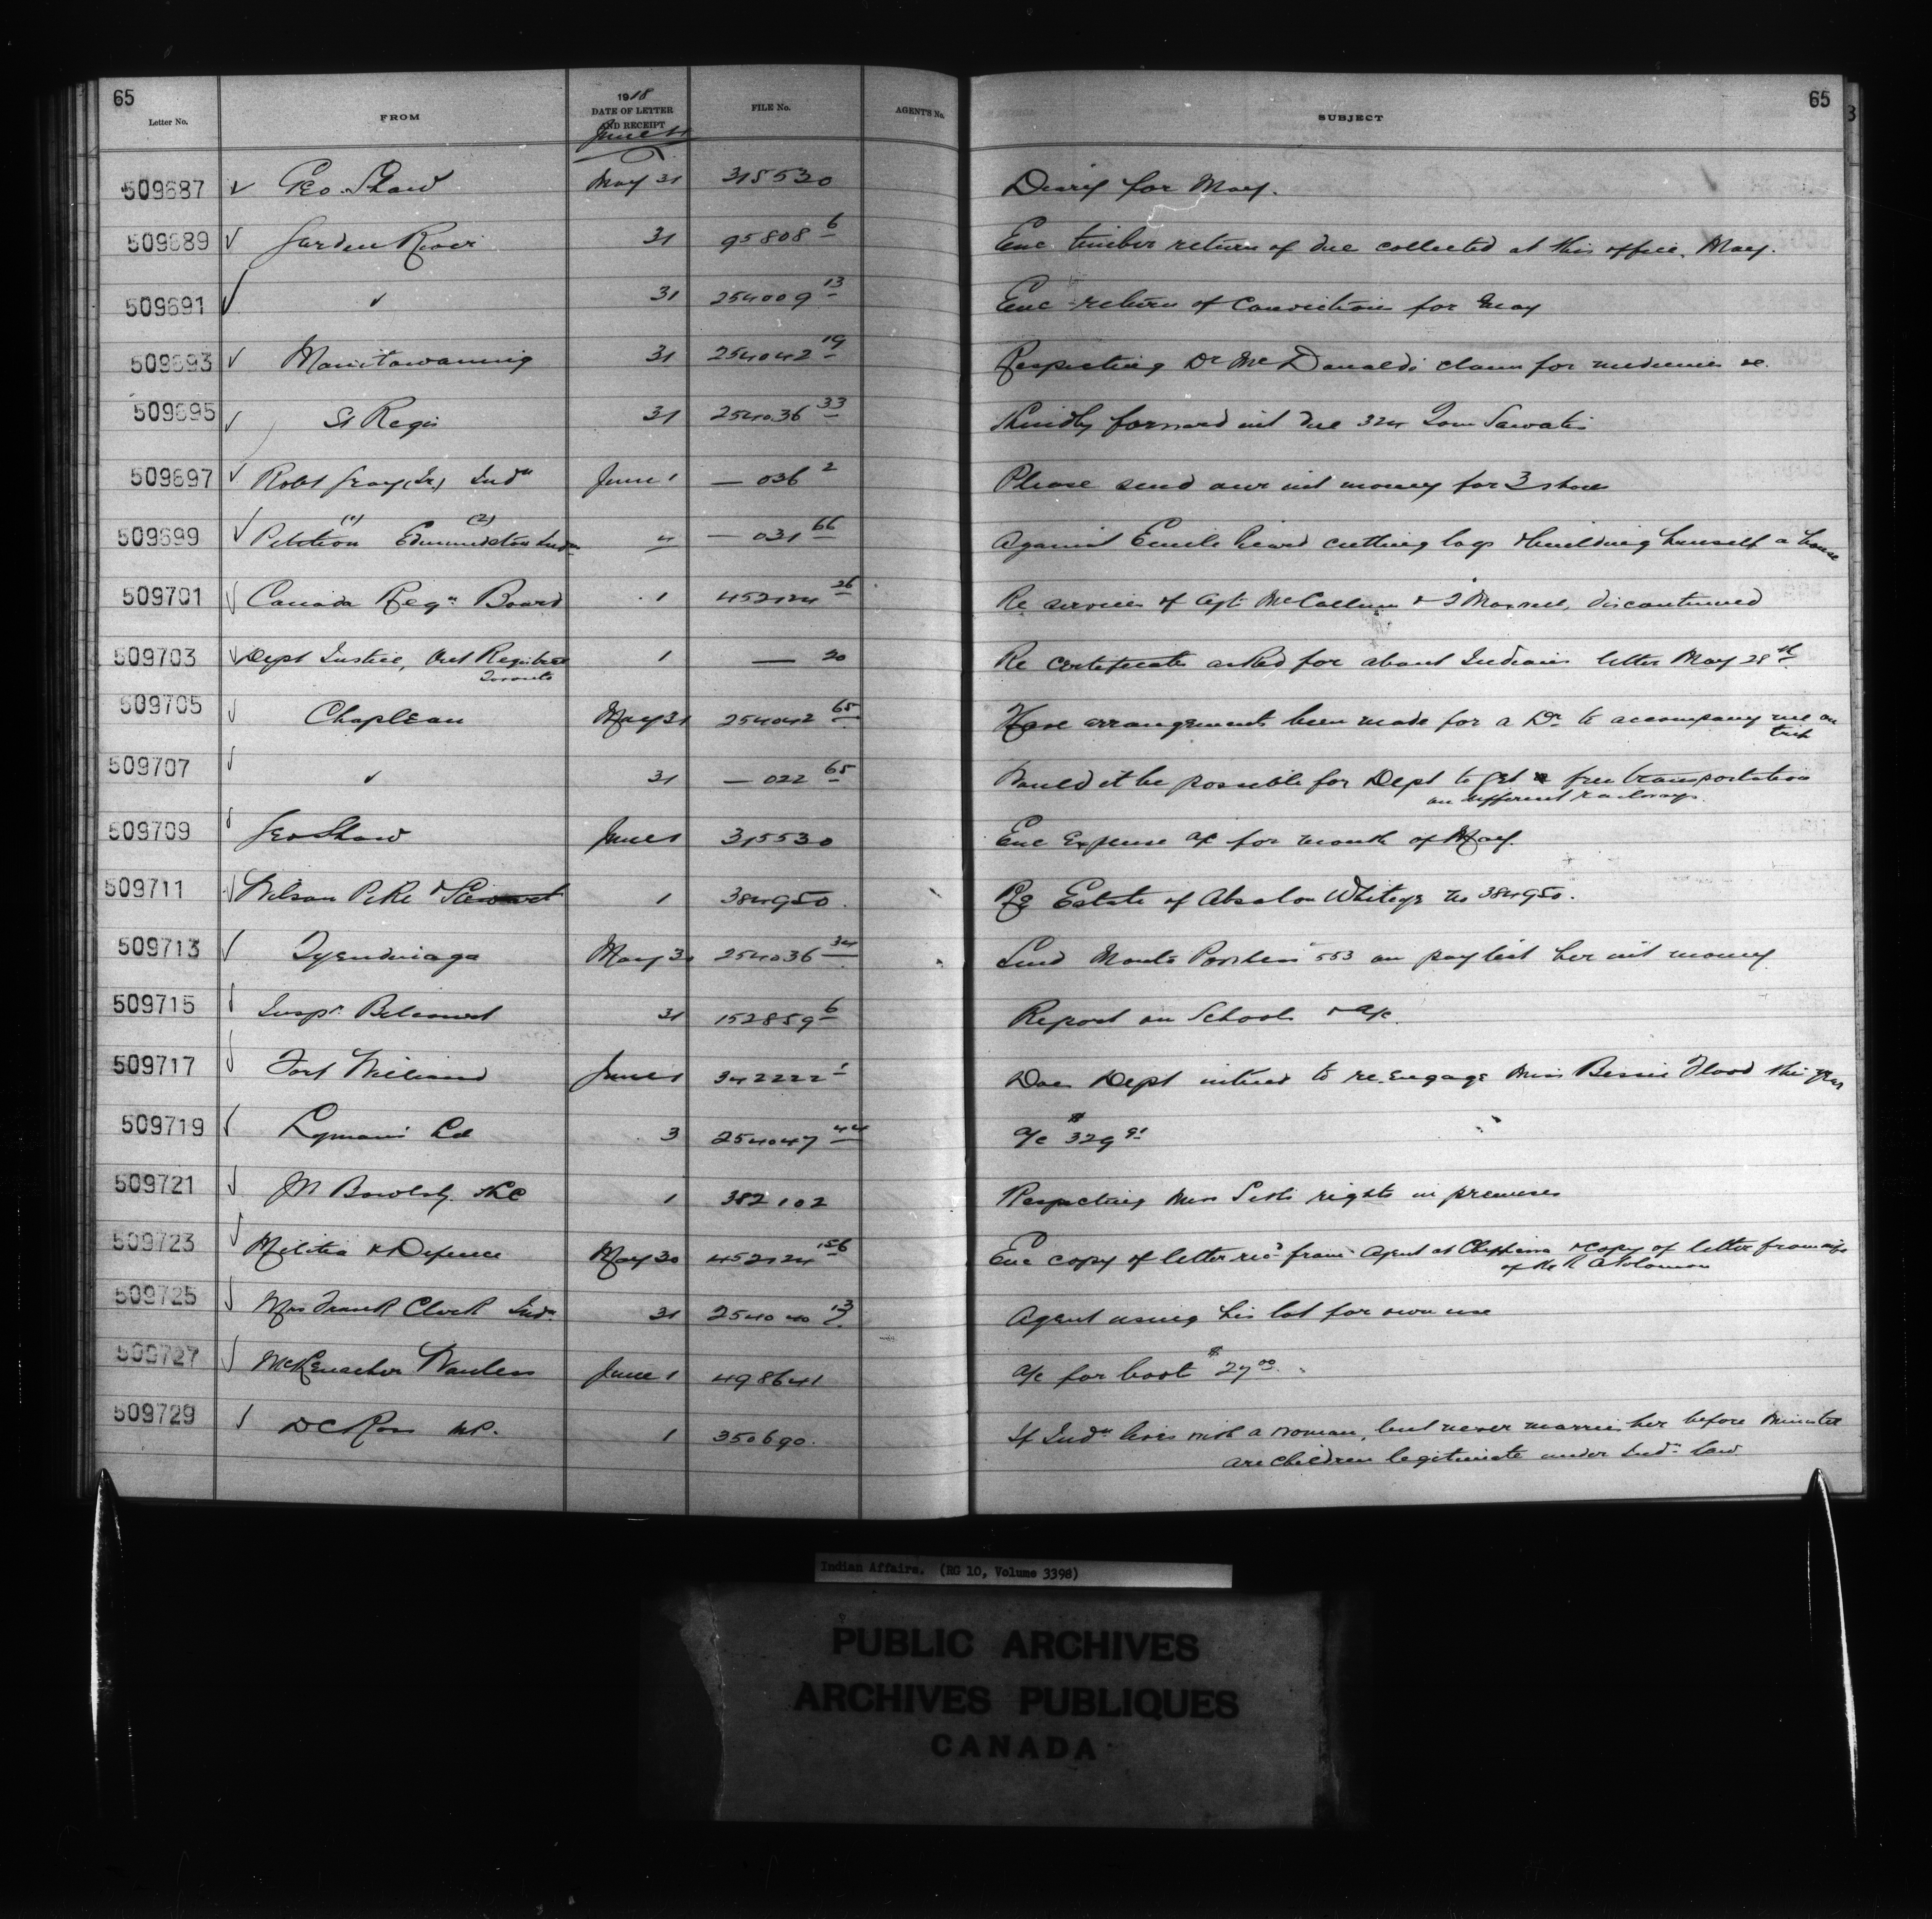 65
65
Letter No. FROM 1918 DATE OF LETTER AND RECEIPT FILE No. AGENT'S No. SUBJECT
June 4
509687 √ Geo. Shaw May 31 315530 Diary for May.
509689 √ Garden River 31 95808 6 Enc. timber return of due collected at this office, May.
509691 √ ✓ 31 254009 13 Enc return of Convictions for May
509693 √ Manitowaning 31 254042 19 Respecting Dr McDonald's claim for medicines &c.
509695 √ St Regis 31 254036 33 Kindly forward int due 324 Tom Sawatis
509697 √ Robt Gray (Sr) Indn June 1 — 036 2 Please send our int money for 3 shares
509699 √ Petition (1) Edmundston Indn (2) " — 031 66 Against Emile cutting logs & building himself a house
509701 √ Canada Regn Board 1 452124 26 Re services of Cpt McCallum & discontinued
509703 √ Dept Justice, Registrar Toronto 1 — 20 Re certificates asked for about Indians letter May 28th
509705 √ Chapleau May 31 254042 65 Have arrangements been made for a Dr to accompany me on trip
509707 √ ✓ 31 — 022 65 Would it be possible for Dept to get free transportation on different railways.
509709 √ Geo Shaw June 1 315530 Enc Expense a/c for month of May.
509711 √ Wilson Pike & Stewart 1 384950. Re Estate of Absalom No 384950.
509713 √ Tyendinaga May 31 254036 34 Send 553 on paylist her int money
509715 √ Inspr. Belcourt 31 152859 6 Report on Schools & a/c.
509717 √ Fort William June 1 342222 1 Does Dept intend to re-engage Miss Bessie Flood this year
509719 √ Lyman's Ltd 3 254047 44 a/c $329 91
509721 √ Bowlby KC 1 382102 Respecting Mrs rights in premises
509723 √ Militia & Defence May 30 452124 156 Enc copy of letter recd from Agent at Chippewa & copy of letter from wife of Solomon
509725 √ Mrs Frank Clark Indn. 31 254040 13 Agent using his lot for own use
509727 √ McKenachie Wanless June 1 498641 a/c for boot $27 00.
509729 √ D C Ross MP. 1 350690. If Indn lives with a woman, but never marries her before minister are children legitimate under Indn law
Indian Affairs. (RG 10, Volume 3398)
PUBLIC ARCHIVES
ARCHIVES PUBLIQUES
CANADA